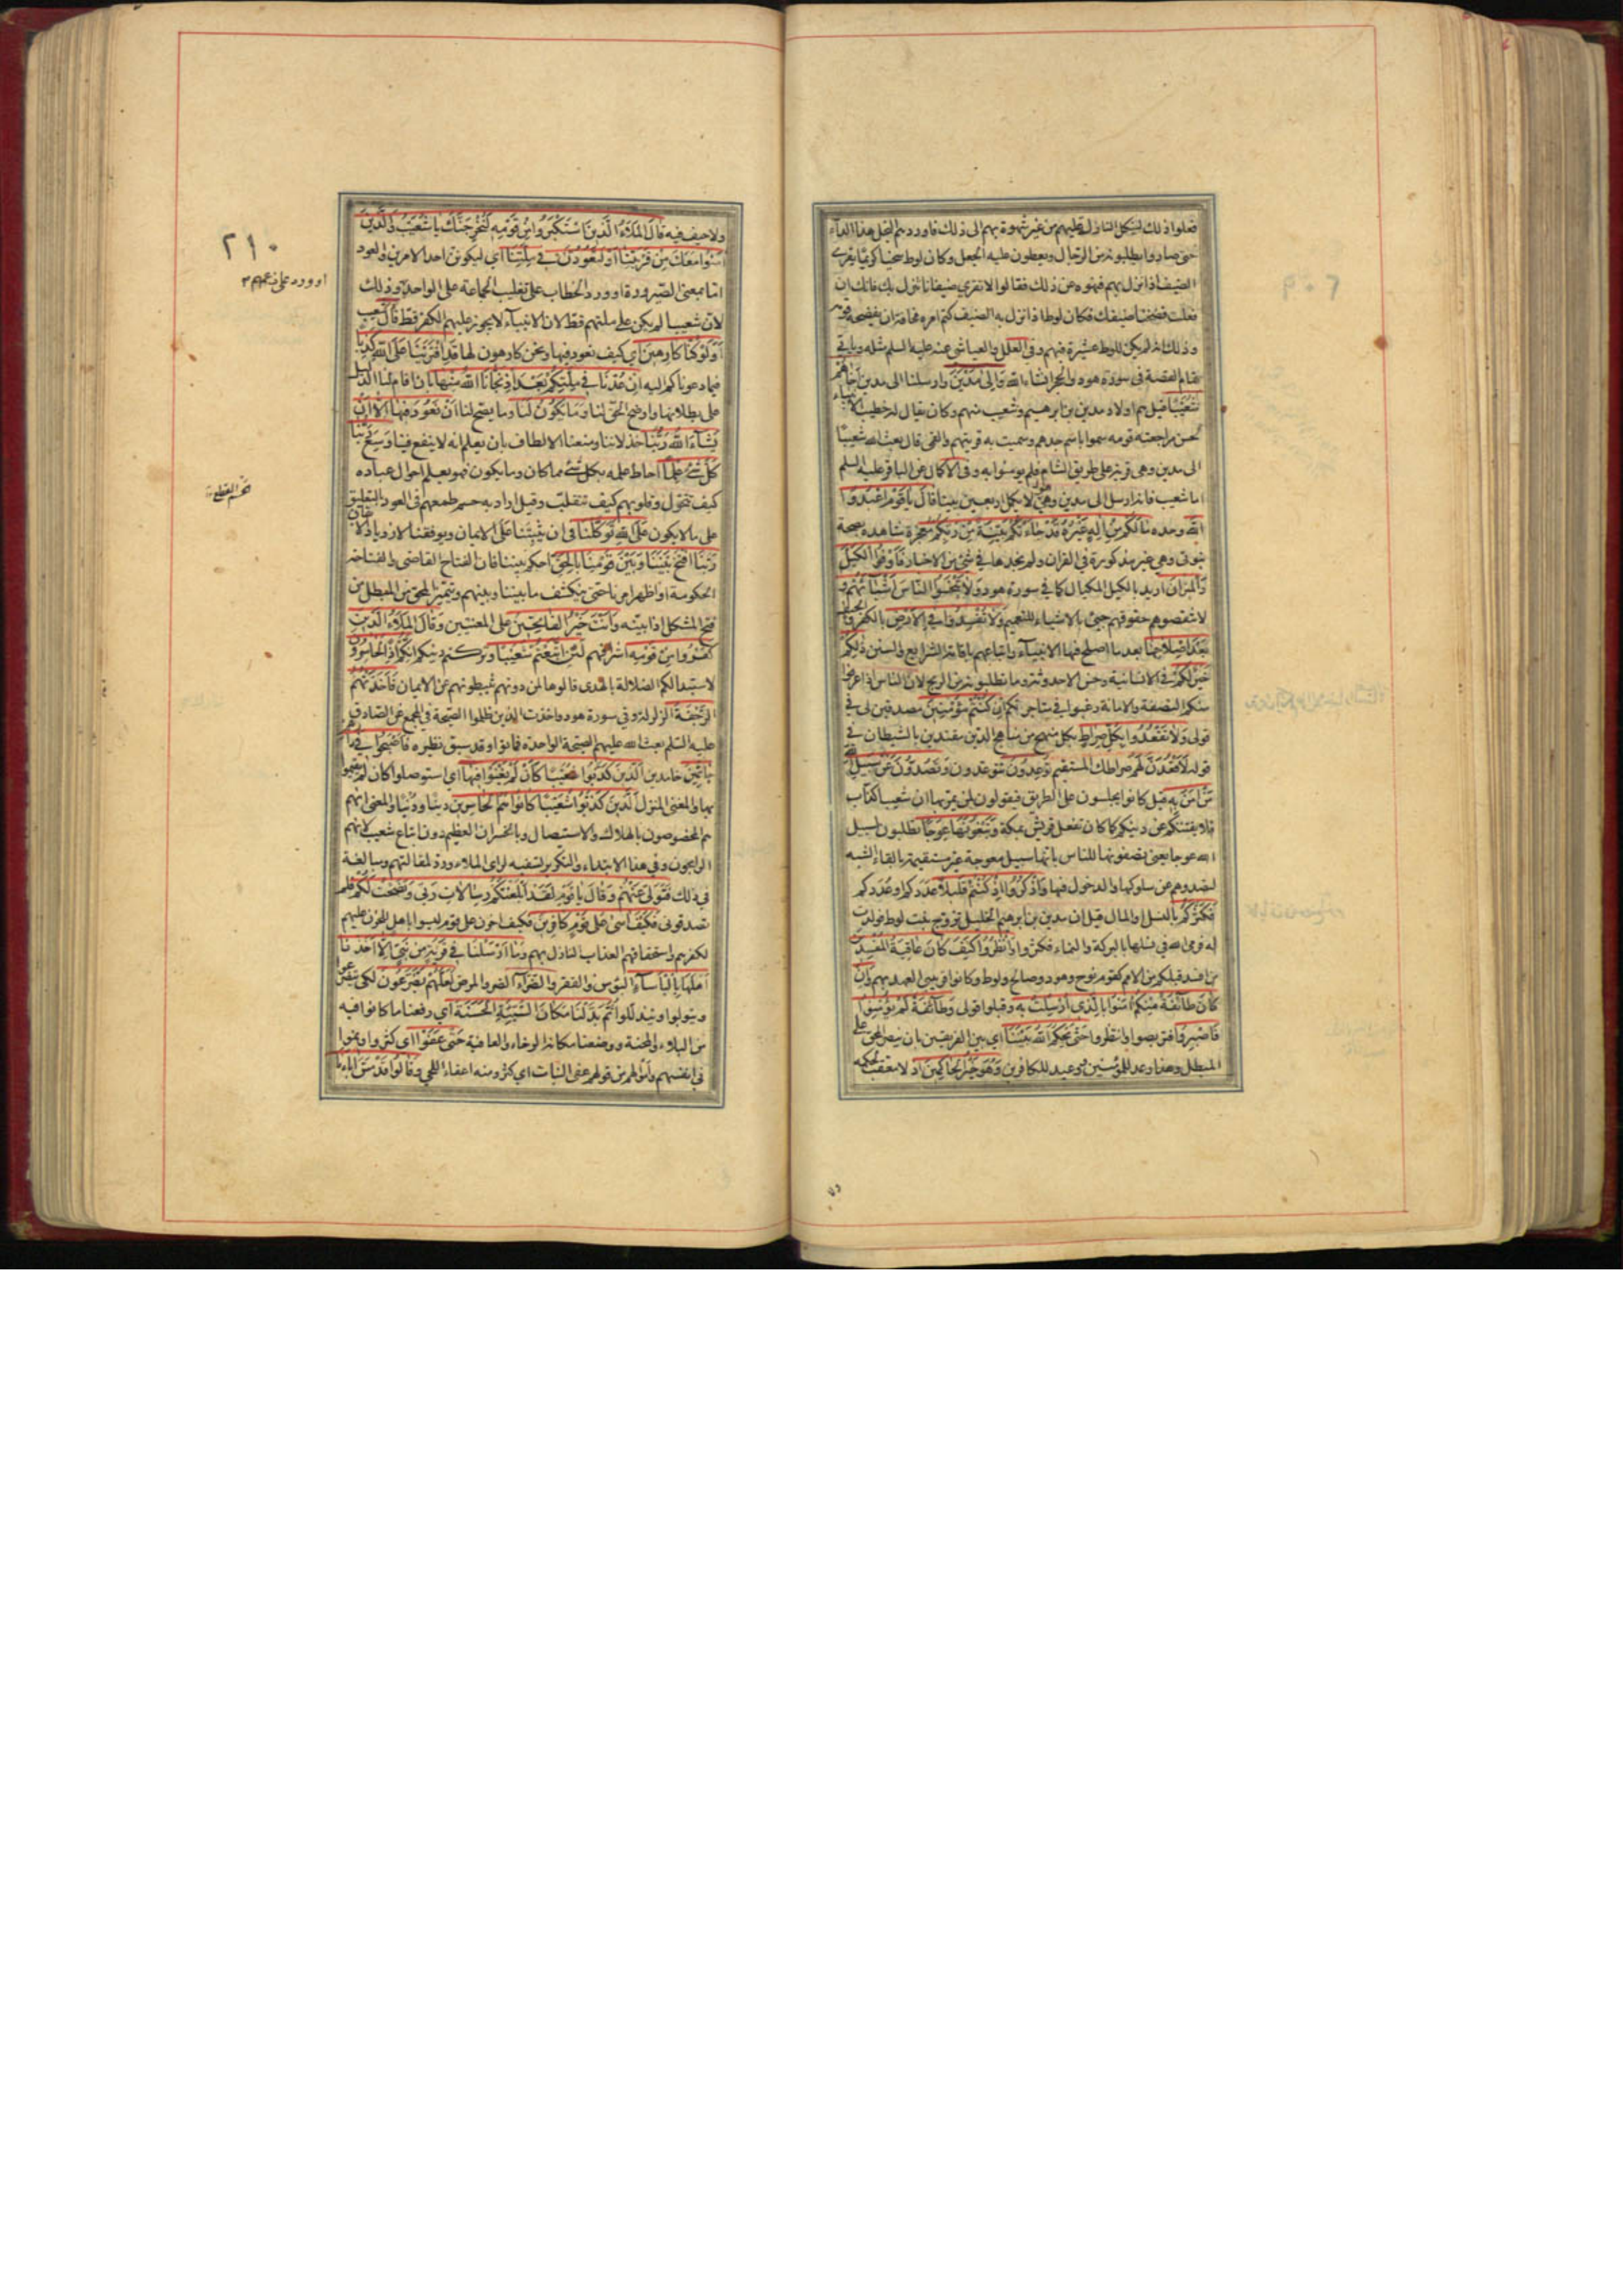 فعلوا ذلك لينكل النازل عليهم من غير شهوة بهم الى ذلك فاوردهم البخل هذا الداء
حتى صاروا يطلبونه من الرجال ويعطون عليه الجعل وكان لوط سخيا كريما يقري
الضيف اذا نزل بهم فنهوه عن ذلك فقالوا لا تقري ضيفانا تنزل بك فانك ان
فعلت فضحنا ضيفك فكان لوط اذا نزل به الضيف كتم امره مخافة ان يفضحه قومه
وذلك انه لم يكن للوط عشيرة فيهم وفي العلل والعياشي عنه عليه السلم مثله وياتي
تمام القصة في سورة هود والحجر انشاء الله وَاِلى مَدْيَنَ وارسلنا الى مدين اَخاهُمْ
شُعَيْبًا قيل هم اولاد مدين بن ابرهيم وشعيب منهم وكان يقال له خطيب الانبياء
لحسن مراجعته قومه سموا باسم جدهم وسميت به قريتهم والقمي قال بعث الله شعيبا
الى مدين وهي قرية على طريق الشام فلم يؤمنوا به وفي الاكمال عن الباقر عليه السلم
اما شعيب فانه ارسل الى مدين وهي لا يكمل اربعين بيتا قالَ يا قَوْمِ اعْبُدُوا
اللهَ وحده ما لَكُمْ مِنْ اِلهٍ غَيْرُهُ قَدْ جاءَتْكُمْ بَيِّنَةٌ مِنْ رَبِّكُمْ معجزة شاهدة بصحة
نبوتي وهي غير مذكورة في القران ولم نجدها في شئ من الاخبار فَاَوْفُوا الْكَيْلَ
وَالْمِيزانَ اريد بالكيل المكيال كما في سورة هود وَلا تَبْخَسُوا النّاسَ اَشْياءَهُمْ
لا تنقصوهم حقوقهم جيئ بالاشياء للتعميم وَلا تُفْسِدُوا فِي الْاَرْضِ بالكفر والحيف
بَعْدَ اِصْلاحِها بعد ما اصلح فيها الانبياء واتباعهم باقامة الشرايع والسنن ذلِكُمْ
خَيْرٌ لَكُمْ في الانسانية وحسن الاحدوثة وما تطلبونه من الربح لان الناس اذا عرفوا
منكم النصفة والامانة رغبوا في متاجرتكم اِنْ كُنْتُمْ مُؤْمِنِينَ مصدقين لي في
قولي وَلا تَقْعُدُوا بِكُلِّ صِراطٍ بكل منهج من مناهج الدين مقتدين بالشيطان في
قوله لَاَقْعُدَنَّ لَهُمْ صراطك المستقيم تُوعِدُونَ تتوعدون وَتَصُدُّونَ عَنْ سَبِيلِ اللهِ
مَنْ امَنَ بِهِ قيل كانوا يجلسون على الطريق فيقولون لمن يمر بها ان شعيبا كذاب
فلا يفتننكم عن دينكم كما كان تفعل قريش بمكة وَتَبْغُونَها عِوَجًا تطلبون لسبيل
الله عوجا يعني تصفونها للناس بانها سبيل معوجة غير مستقيمة بالقاء الشبه
لتصدوهم عن سلوكها والدخول فيها وَاذْكُرُوا اِذْ كُنْتُمْ قَلِيلًا عددكم او عُددكم
فَكَثَّرَكُمْ بالنسل والمال قيل ان مدين بن ابرهيم الخليل تزوج بنت لوط فولدت
له فرمى الله في نسلها بالبركة والنماء فكثروا وَانْظُرُوا كَيْفَ كانَ عاقِبَةُ الْمُفْسِدِينَ
من افسد قبلكم من الامم كقوم نوح وهود وصالح ولوط وكانوا قريبي العهد بهم وَاِنْ
كانَ طائِفَةٌ مِنْكُمْ امَنُوا بِالَّذِي اُرْسِلْتُ بِهِ وقبلوا قولي وَطائِفَةٌ لَمْ يُؤْمِنُوا
فَاصْبِرُوا فتربصوا وانتظروا حَتّى يَحْكُمَ اللهُ بَيْنَنا اي بين الفريقين بان ينصر المحق على
المبطل وهذا وعد للمؤمنين ووعيد للكافرين وَهُوَ خَيْرُ الْحاكِمِينَ اذ لا معقب لحكمه
ولا
٢١٠
ولا حيف فيه قالَ الْمَلَاُ الَّذِينَ اسْتَكْبَرُوا مِنْ قَوْمِهِ لَنُخْرِجَنَّكَ يا شُعَيْبُ وَالَّذِينَ
امَنُوا مَعَكَ مِنْ قَرْيَتِنا اَوْ لَتَعُودُنَّ فِي مِلَّتِنا اي ليكونن احد الامرين والعود
اما بمعنى الصيرورة او ورد الخطاب على تغليب الجماعة على الواحد وذلك
لان شعيبا لم يكن على ملتهم قط لان الانبياء لا يجوز عليهم الكفر قط قالَ شعيب
اَوَلَوْ كُنّا كارِهِينَ اي كيف نعود فيها ونحن كارهون لها قَدِ افْتَرَيْنا عَلَى اللهِ كَذِبًا
فيما دعوناكم اليه اِنْ عُدْنا فِي مِلَّتِكُمْ بَعْدَ اِذْ نَجّانَا اللهُ مِنْها بان اقام لنا الدليل
على بطلانها واوضح الحق لنا وَما يَكُونُ لَنا وما يصح لنا اَنْ نَعُودَ فِيها اِلّا اَنْ
يَشاءَ اللهُ رَبُّنا خذلاننا ومنعنا الالطاف بان يعلم انه لا ينفع فينا وَسِعَ رَبُّنا
كُلَّ شَيْءٍ عِلْمًا احاط علمه بكل شئ مما كان وما يكون فهو يعلم احوال عباده
كيف تتحول وقلوبهم كيف تتقلب وقيل اراد به حسم طمعهم في العود بالتعليق
على ما لا يكون عَلَى اللهِ تَوَكَّلْنا في ان يثبتنا على الايمان ويوفقنا لازدياد الايقان
رَبَّنَا افْتَحْ بَيْنَنا وَبَيْنَ قَوْمِنا بِالْحَقِّ احكم بيننا فان الفتاح القاضي والفتاحة
الحكومة او اظهر امرنا حتى ينكشف ما بيننا وبينهم ويتميز المحق من المبطل من
فتح المشكل اذا بينه وَاَنْتَ خَيْرُ الْفاتِحِينَ على المعنيين وَقالَ الْمَلَاُ الَّذِينَ
كَفَرُوا مِنْ قَوْمِهِ اشرافهم لَئِنِ اتَّبَعْتُمْ شُعَيْبًا وتركتم دينكم اِنَّكُمْ اِذًا لَخاسِرُونَ
لاستبدالكم الضلالة بالهدى قالوها لمن دونهم يثبطونهم عن الايمان فَاَخَذَتْهُمُ
الرَّجْفَةُ الزلزلة وفي سورة هود واخذت الذين ظلموا الصيحة في المجمع عن الصادق
عليه السلم بعث الله عليهم الصيحة الواحدة فماتوا وقد سبق نظيره فَاَصْبَحُوا فِي دارِهِمْ
جاثِمِينَ خامدين اَلَّذِينَ كَذَّبُوا شُعَيْبًا كَاَنْ لَمْ يَغْنَوْا فِيها اي استوصلوا كان لم يقيموا
بها والمعنى المنزل اَلَّذِينَ كَذَّبُوا شُعَيْبًا كانُوا هُمُ الْخاسِرِينَ دينا ودنيا والمعنى انهم
هم المخصوصون بالهلاك والاستيصال وبالخسران العظيم دون اتباع شعيب لانهم
الرابحون وفي هذا الابتداء والتكرير تسفيه لراي الملاء ورد لمقالتهم ومبالغة
في ذلك فَتَوَلّى عَنْهُمْ وَقالَ يا قَوْمِ لَقَدْ اَبْلَغْتُكُمْ رِسالاتِ رَبِّي وَنَصَحْتُ لَكُمْ فلم
تصدقوني فَكَيْفَ اسى عَلى قَوْمٍ كافِرِينَ فكيف احزن على قوم ليسوا باهل للحزن عليهم
لكفرهم واستحقاقهم العذاب النازل بهم وَما اَرْسَلْنا فِي قَرْيَةٍ مِنْ نَبِيٍّ اِلّا اَخَذْنا
اَهْلَها بِالْبَاْساءِ البؤس والفقر وَالضَّرّاءِ الضر والمرض لَعَلَّهُمْ يَضَّرَّعُونَ لكي يتضرعوا
ويتوبوا ويتذللوا ثُمَّ بَدَّلْنا مَكانَ السَّيِّئَةِ الْحَسَنَةَ اي رفعنا ما كانوا فيه
من البلاء والمحنة ووضعنا مكانه الرخاء والعافية حَتّى عَفَوْا اي كثروا ونموا
في انفسهم واموالهم من قولهم عفى النبات اي كثر ومنه اعفاء اللحى وَقالُوا قَدْ مَسَّ اباءَنَا
او ورد على زعمهم